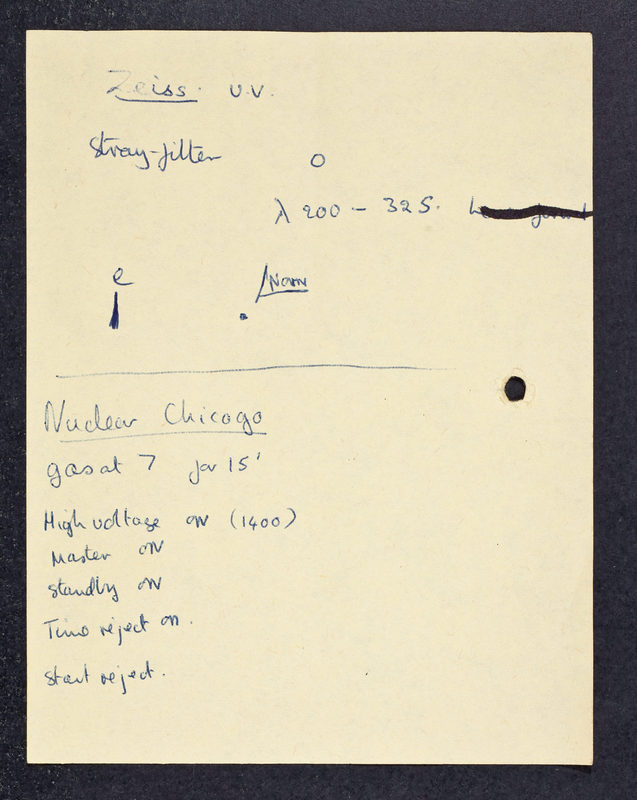 Zeiss. U.V.
Stray-filter O
λ 200 - 325.
e
Gas at 7 for 15'
Nuclear Chicago
High voltage ON (1400)
Master ON
Standby ON
Time reject on.
Start reject.